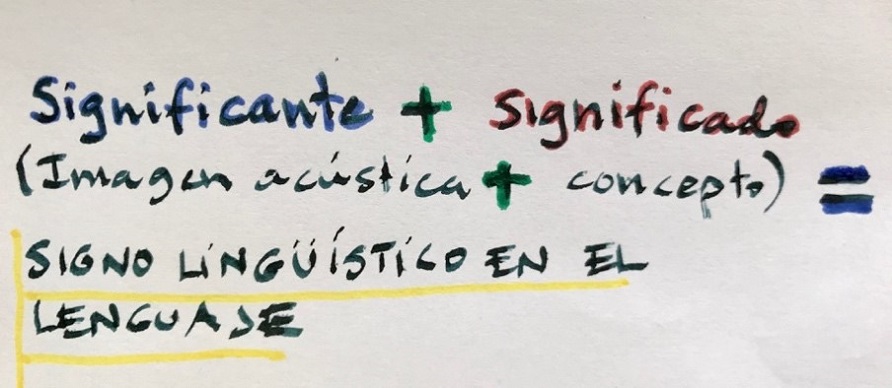 Significante + Significado
(Imagen acústica + concepto) =
SIGNO LINGÜÍSTICO EN EL
LENGUAJE